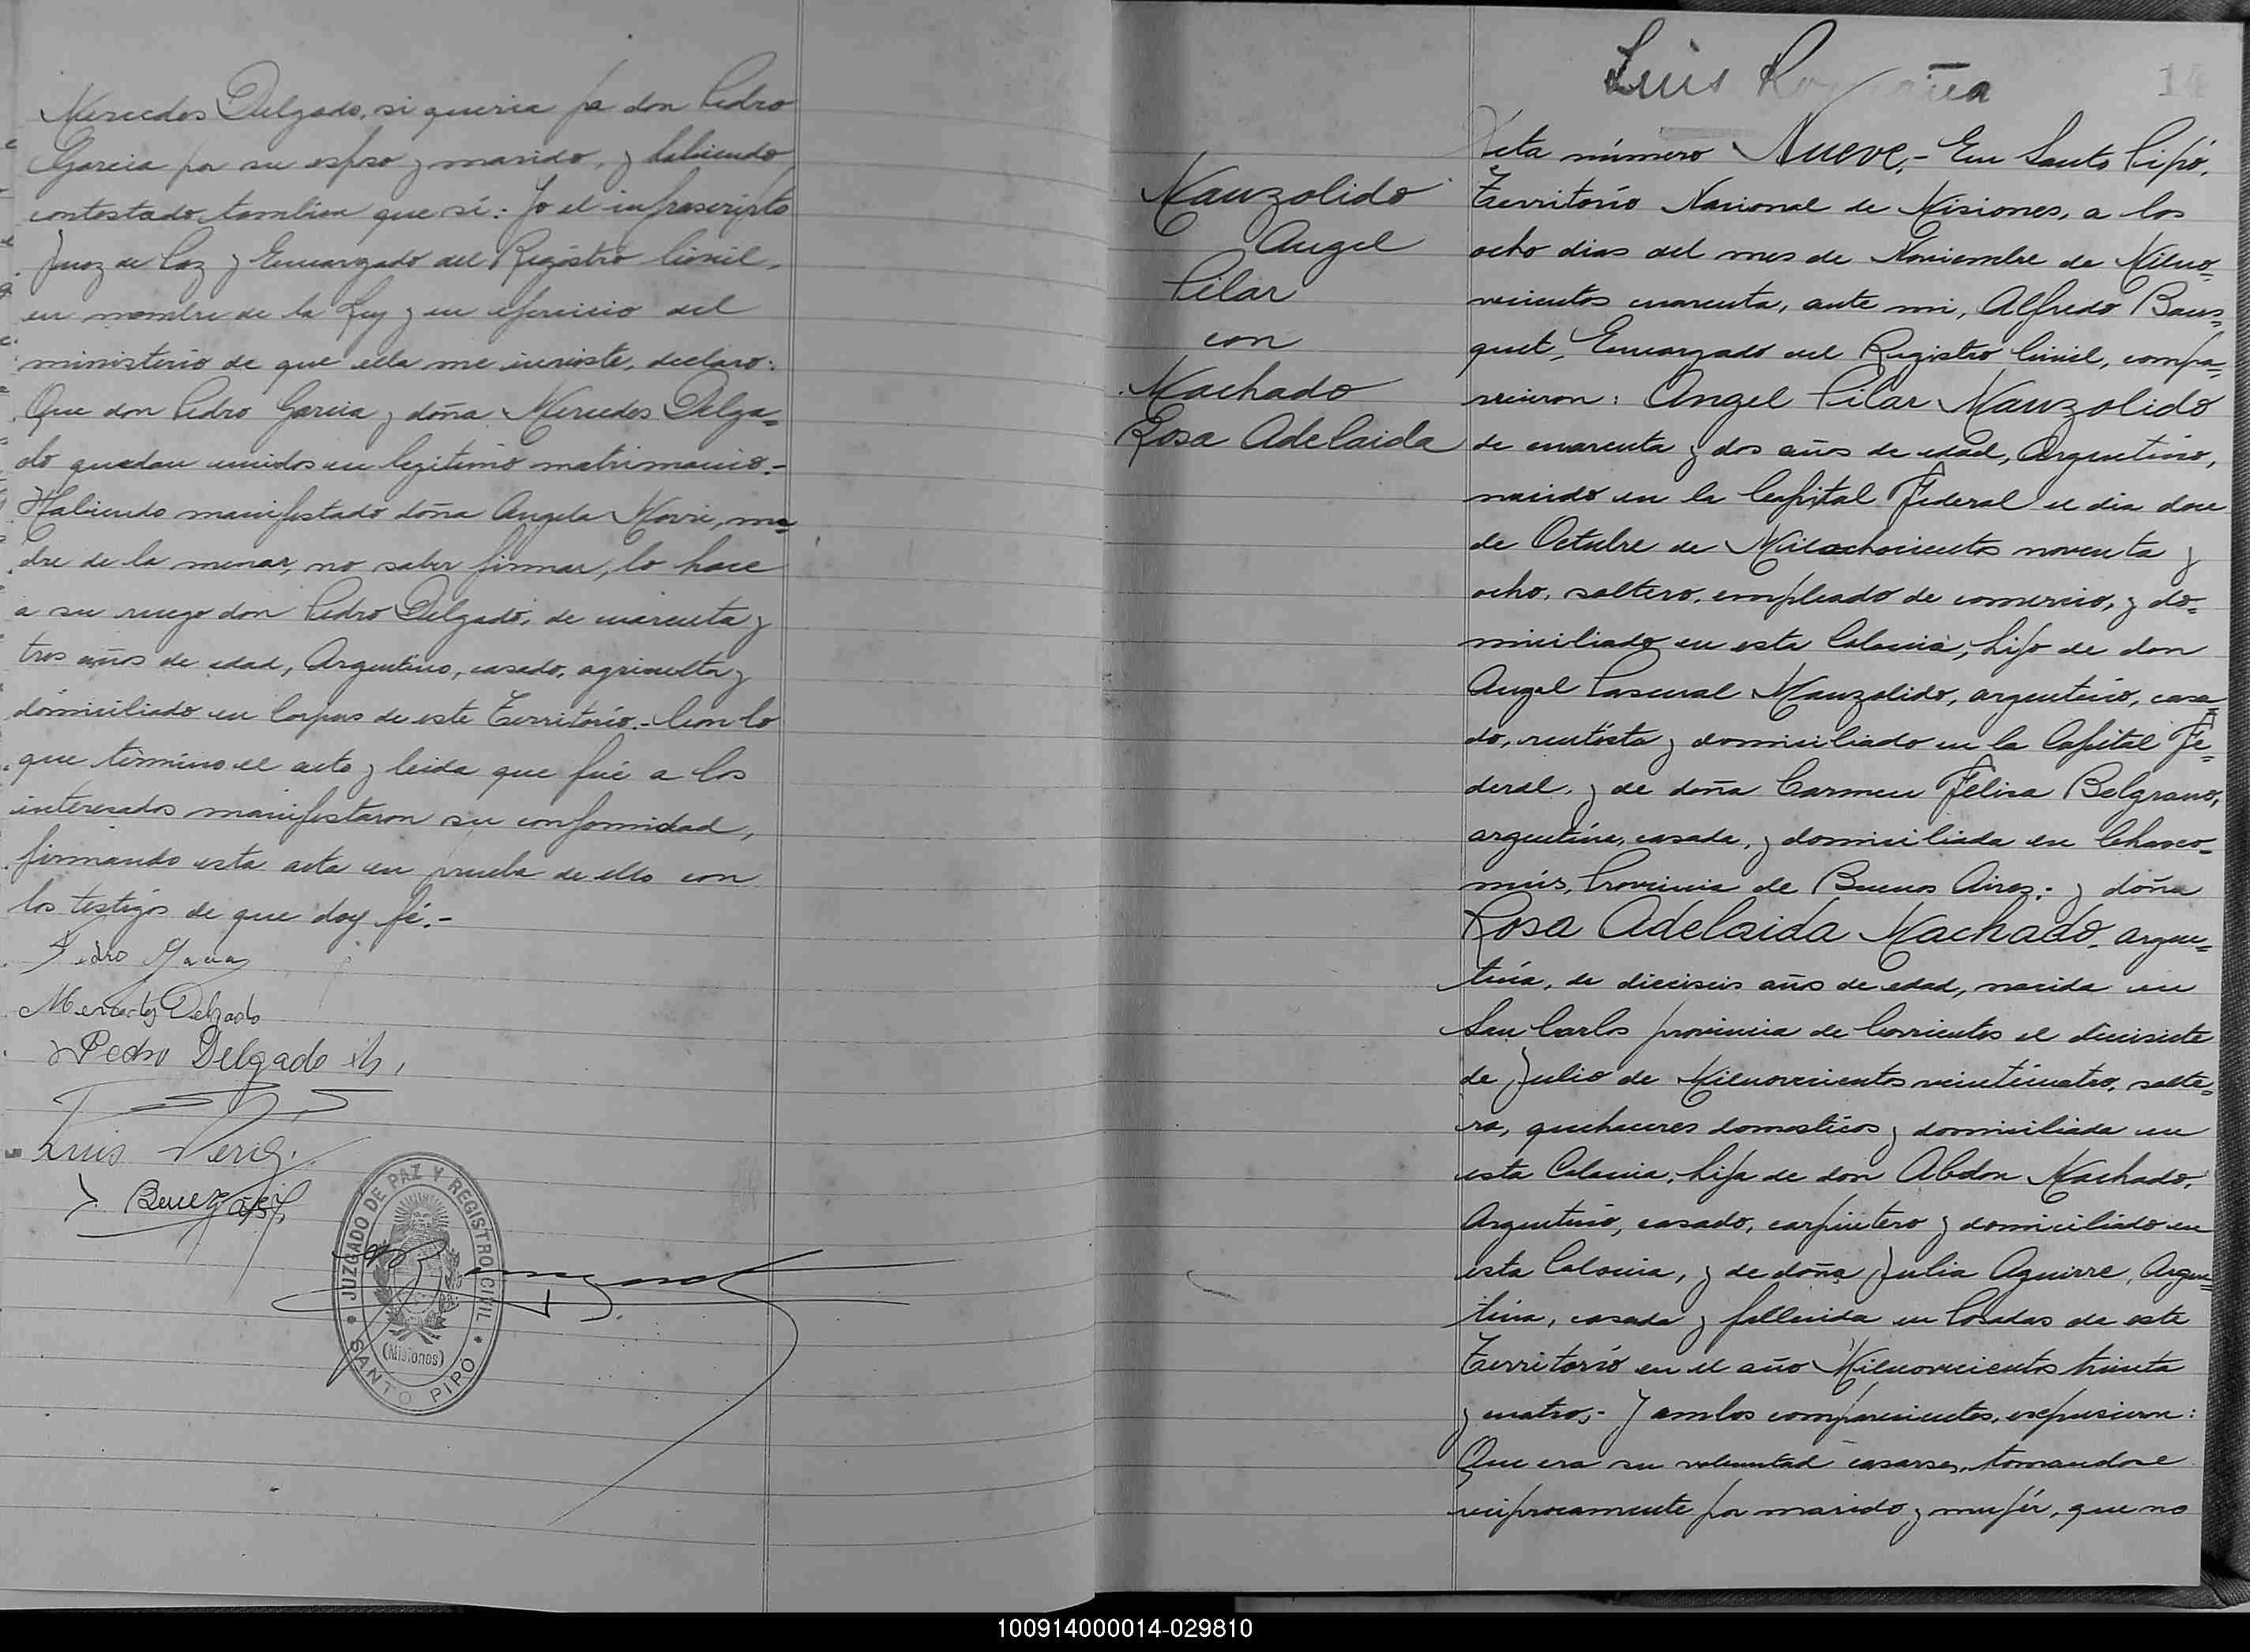 Mercedes Delgado, si queria pa don Pedro
Garcia por su espso y marido, y habiendo
contestado tambien que sí: Yo el infrascripto
Juez de Paz y Encargado del Registro Civil,
en nombre de la Ley y en ejercicio del
ministerio de que ella me inviste, declaro:
Que don Pedro Garcia y doña Mercedes Delga=
do quedan unidos en legitimo matrimonio.-
Habiendo manifestado doña Angela Movie, ma=
dre de la menor, no saber firmar, lo hace
a su ruego don Pedro Delgado, de cuarenta y
tres años de edad, Argentino, casado, agricultor y
domiciliado en Corpus de este Territorio.- Con lo
que términó el acto y leida que fué a los
interesados manifestaron su conformidad,
firmando esta acta en prueba de ello con
los testigos de que doy fé.-
Pedro Garcia
Mercedes Delgado
Pedro Delgado h,
Luis
JUZGADO DE PAZ Y REGISTRO CIVIL
(Misiones)
SANTO PIPO
Luis
14
Manzolido
Angel
Pilar
con
Machado
Rosa Adelaida
Acta número Nueve.- En Santo Pipó,
Territorio Nacional de Misiones, a los
ocho dias del mes de Noviembre de Milno=
vecientos cuarenta, ante mi, Alfredo Bous=
quet, Encargado del Registro Civil, compa=
recieron: Angel Pilar Manzolido
de cuarenta y dos años de edad, Argentino,
nacido en la Capital Federal el dia doce
de Octubre de Milochocientos noventa y
ocho, soltero, empleado de comercio, y do=
miciliado en esta Colonia; hijo de don
Angel Pascual Manzolido, argentino, casa=
do, rentista y domiciliado en la Capital Fe=
deral, y de doña Carmen Felisa Belgrano,
argentina, casada, y domiciliada en Chasco=
mús, Provincia de Buenos Aires.- y doña
Rosa Adelaida Machado, argen=
tina, de dieciseis años de edad, nacida en
San Carlos provincia de Corrientes el diecisiete
de Julio de Milnovecientos veinticuatro, solte=
ra, quehaceres domesticos y domiciliada en
esta Colonia, hija de don Abdon Machado,
Argentino, casado, carpintero y domiciliado en
esta Colonia, y de doña Julia Aguirre, Argen=
tina, casada y fallecida en Posadas de este
Territorio en el año Milnovecientos treinta
y cuatro.- Y ambos comparecientes, expusieron:
Que era su voluntad casarse, tomandose
reciprocamente por marido y mujér, que no
100914000014-029810